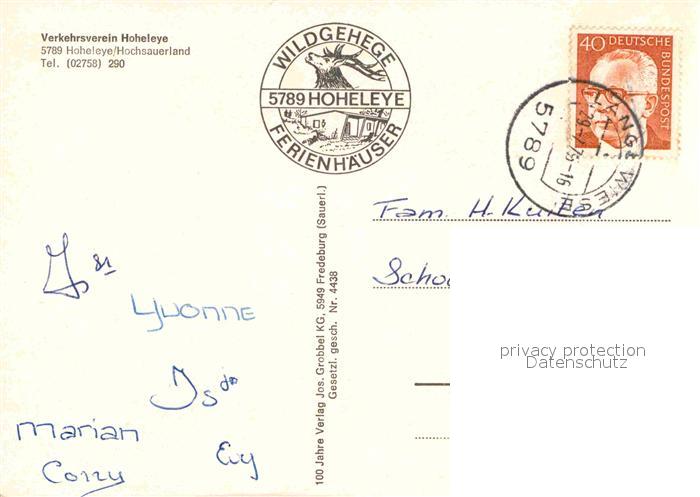 Verkehrsverein Hoheleye
5789 Hoheleye/Hochsauerland
Tel. (02758) 290
WILDGEHEGE
5789 HOHELEYE
FERIENHÄUSER
40 DEUTSCHE
BUNDESPOST
LANGEWIESE
5789
Fam. H.
100 Jahre Verlag Jos. Grobbel KG, 5949 Fredeburg (Sauerl.)
Gesetzl. gesch. Nr. 4438
Yvonne
Marian
Corry
privacy protection
Datenschutz